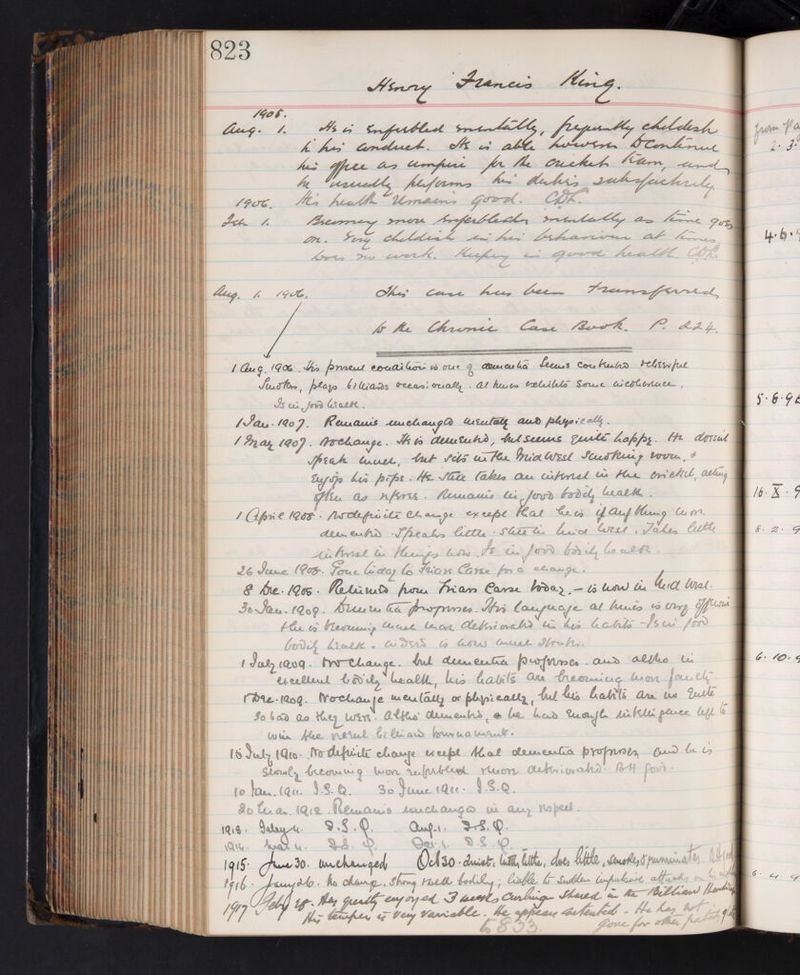 823
Henry Francis King.
1905.
Aug. 1. He is enfeebled mentally, frequently childish
in his conduct. He is able however to continue
his office as umpire for the cricket team, and
he usually performs his duties satisfactorily.
1906. His health remains good.
Feb. 1. Becoming more enfeebled mentally as time goes
on. Very childish in his behaviour at times.
Does no work. Keeping in good health.
Aug. 1. 1906. This case has been transferred
to the Chronic Case Book. P. 224.
1 Aug. 1906. His present condition is one of dementia. Seems contented
Smokes, plays billiards occasionally. at times exhibits some incoherence.
Is in good health.
1 Jan. 1907. Remains unchanged mentally and physically.
1 May 1907. No change. He is demented, but seems quite happy. He doesn't
speak much, but sits in the Mid West Smoking room, &
enjoys his pipe. He still takes an interest in the cricket, acting
often as referee. Remains in good bodily health.
1 April 1908. No definite change except that he is if anything more
demented. Speaks little. Still in Mid West. Takes little
interest in things now. Is in good bodily health.
26 June 1908. Gone today to Friars Carse for a change.
8 Dec. 1908. Returned from Friars Carse today, - is now in Mid West.
30 Jan. 1909. Dementia progresses. His language at times is very offensive
& he is becoming much more deteriorated in his habits - Is in good
bodily health. is now much stouter.
1 July 1909. No change. but dementia progresses. and altho in
excellent bodily health, his habits are becoming more faulty.
1 Dec. 1909. No change mentally or physically, but his habits are not quite
so bad as they were. Altho' demented, he had enough intelligence left to
win the recent billiard tournament.
16 July 1910. No definite change except that dementia progresses and he is
slowly becoming more enfeebled & more deteriorated. good.
10 Jan. 1911. I.S.Q. 30 June 1911. I.S.Q.
20 Mar. 1912. Remains unchanged in any respect.
1913. I.S.Q. Aug. 1. I.S.Q.
1914. Mar 4. I.S.Q. Oct 1. I.S.Q.
1915. June 30. unchanged Oct 30. quiet, little, does little, smokes & ruminates
1916. No change. Strong & well bodily; liable to sudden impulsive attacks on
1917 Feby 28. Has greatly enjoyed 3 weeks curling. Shared in the Billiard
His temper is very variable. He appears contented. He has not
gone for other
6833
from Pa
4.6.
5.6.9
16.X.9
8.2.9
6.10.9
6.4.9